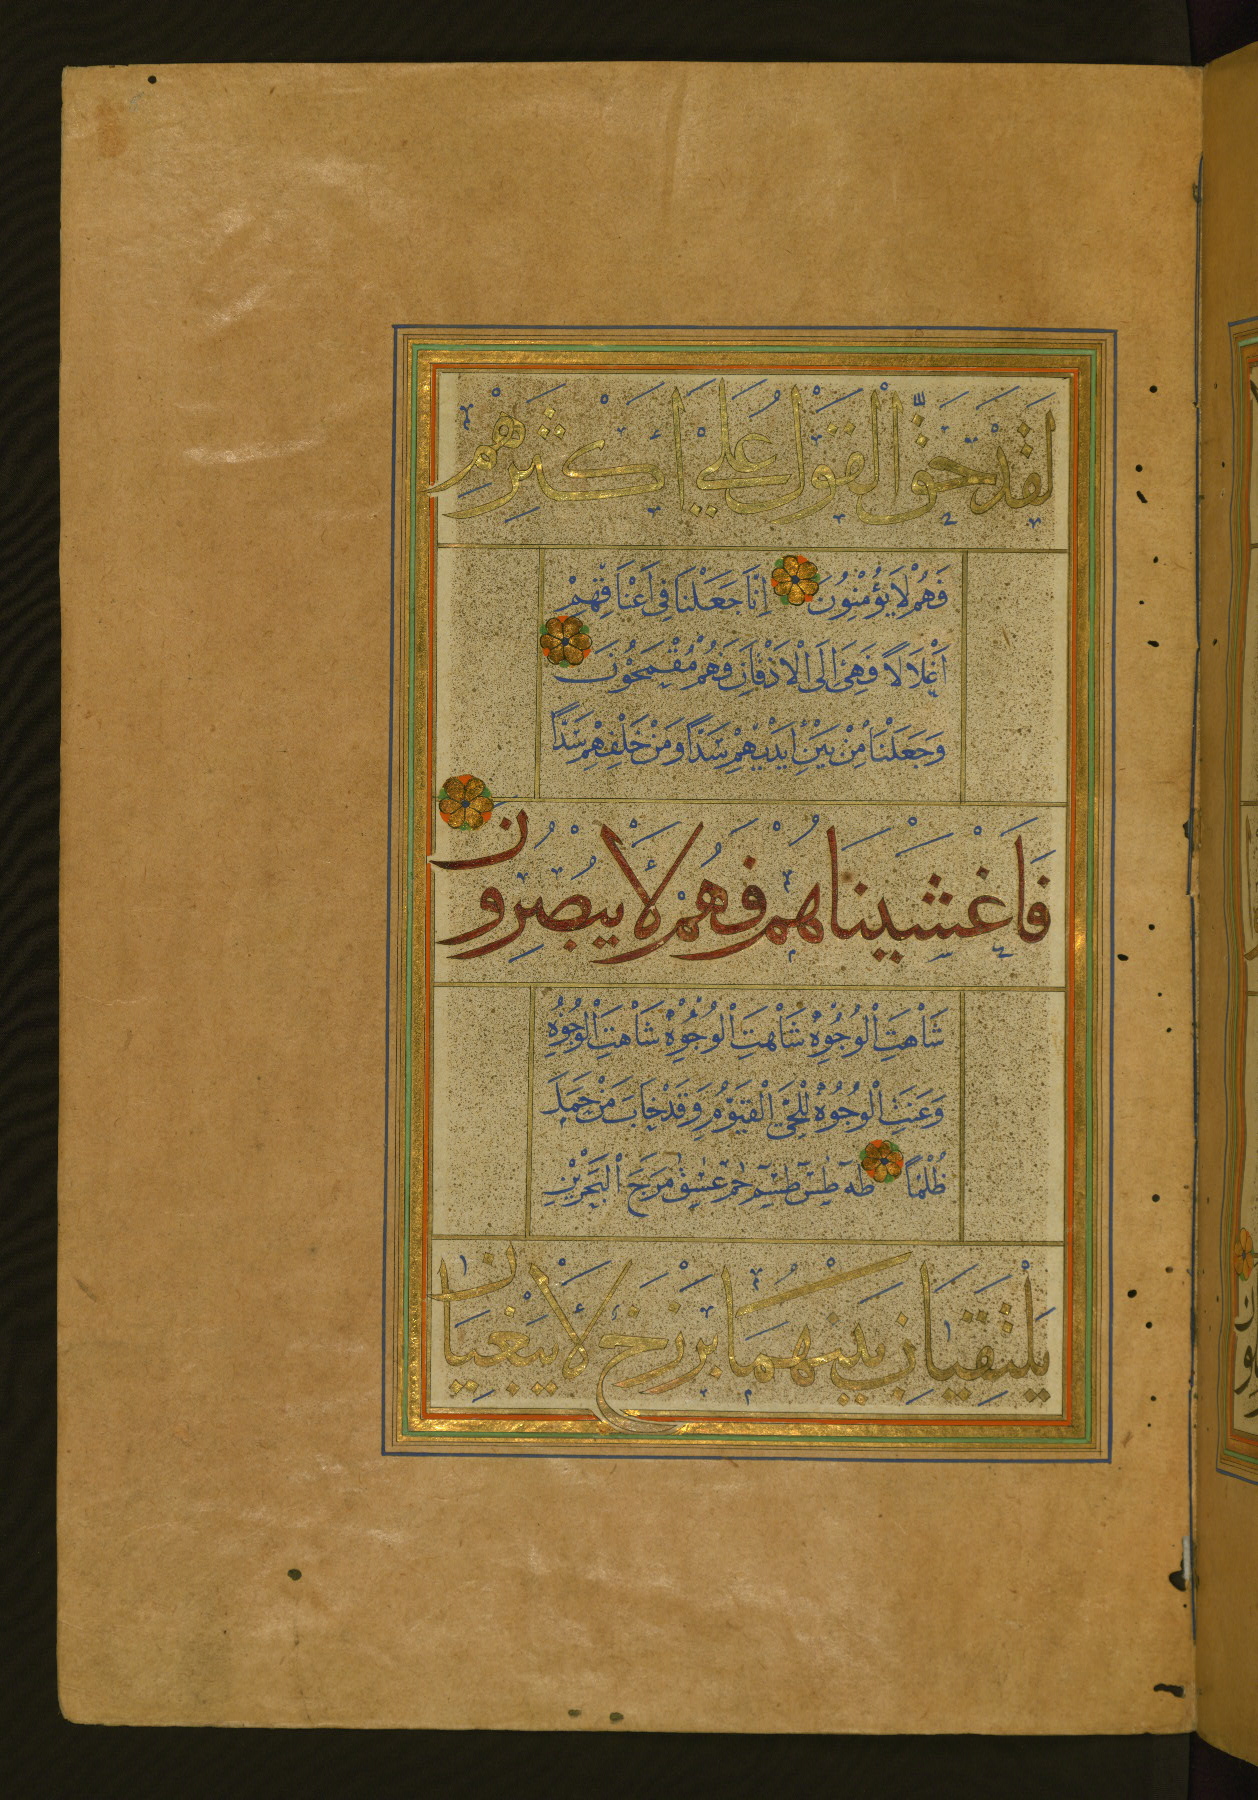 لَقَدْ حَقَّ الْقَوْلُ عَلَىٰ أَكْثَرِهِمْ
فَهُمْ لَا يُؤْمِنُونَ اِنَّا جَعَلْنَا فِى اَعْنَاقِهِمْ
اَغْلَالًا فَهِىَ اِلَى الْاَذْقَانِ فَهُمْ مُقْمَحُونَ
وَجَعَلْنَا مِنْ بَيْنِ اَيْدِيْهِمْ سَدًّا وَمِنْ خَلْفِهِمْ سَدًّا
فَاَغْشَيْنَاهُمْ فَهُمْ لَا يُبْصِرُونَ
شَاهَتِ الْوُجُوْهُ شَاهَتِ الْوُجُوْهُ شَاهَتِ الْوُجُوْهُ
وَعَنَتِ الْوُجُوْهُ لِلْحَيِّ الْقَيُّوْمِ وَقَدْ خَابَ مَنْ حَمَلَ
ظُلْمًا طٰهٰ طٰسٓ طٰسٓمٓ حٰمٓ عٓسٓقٓ مَرَجَ الْبَحْرَيْنِ
يَلْتَقِيَانِ بَيْنَهُمَا بَرْزَخٌ لَا يَبْغِيَانِ